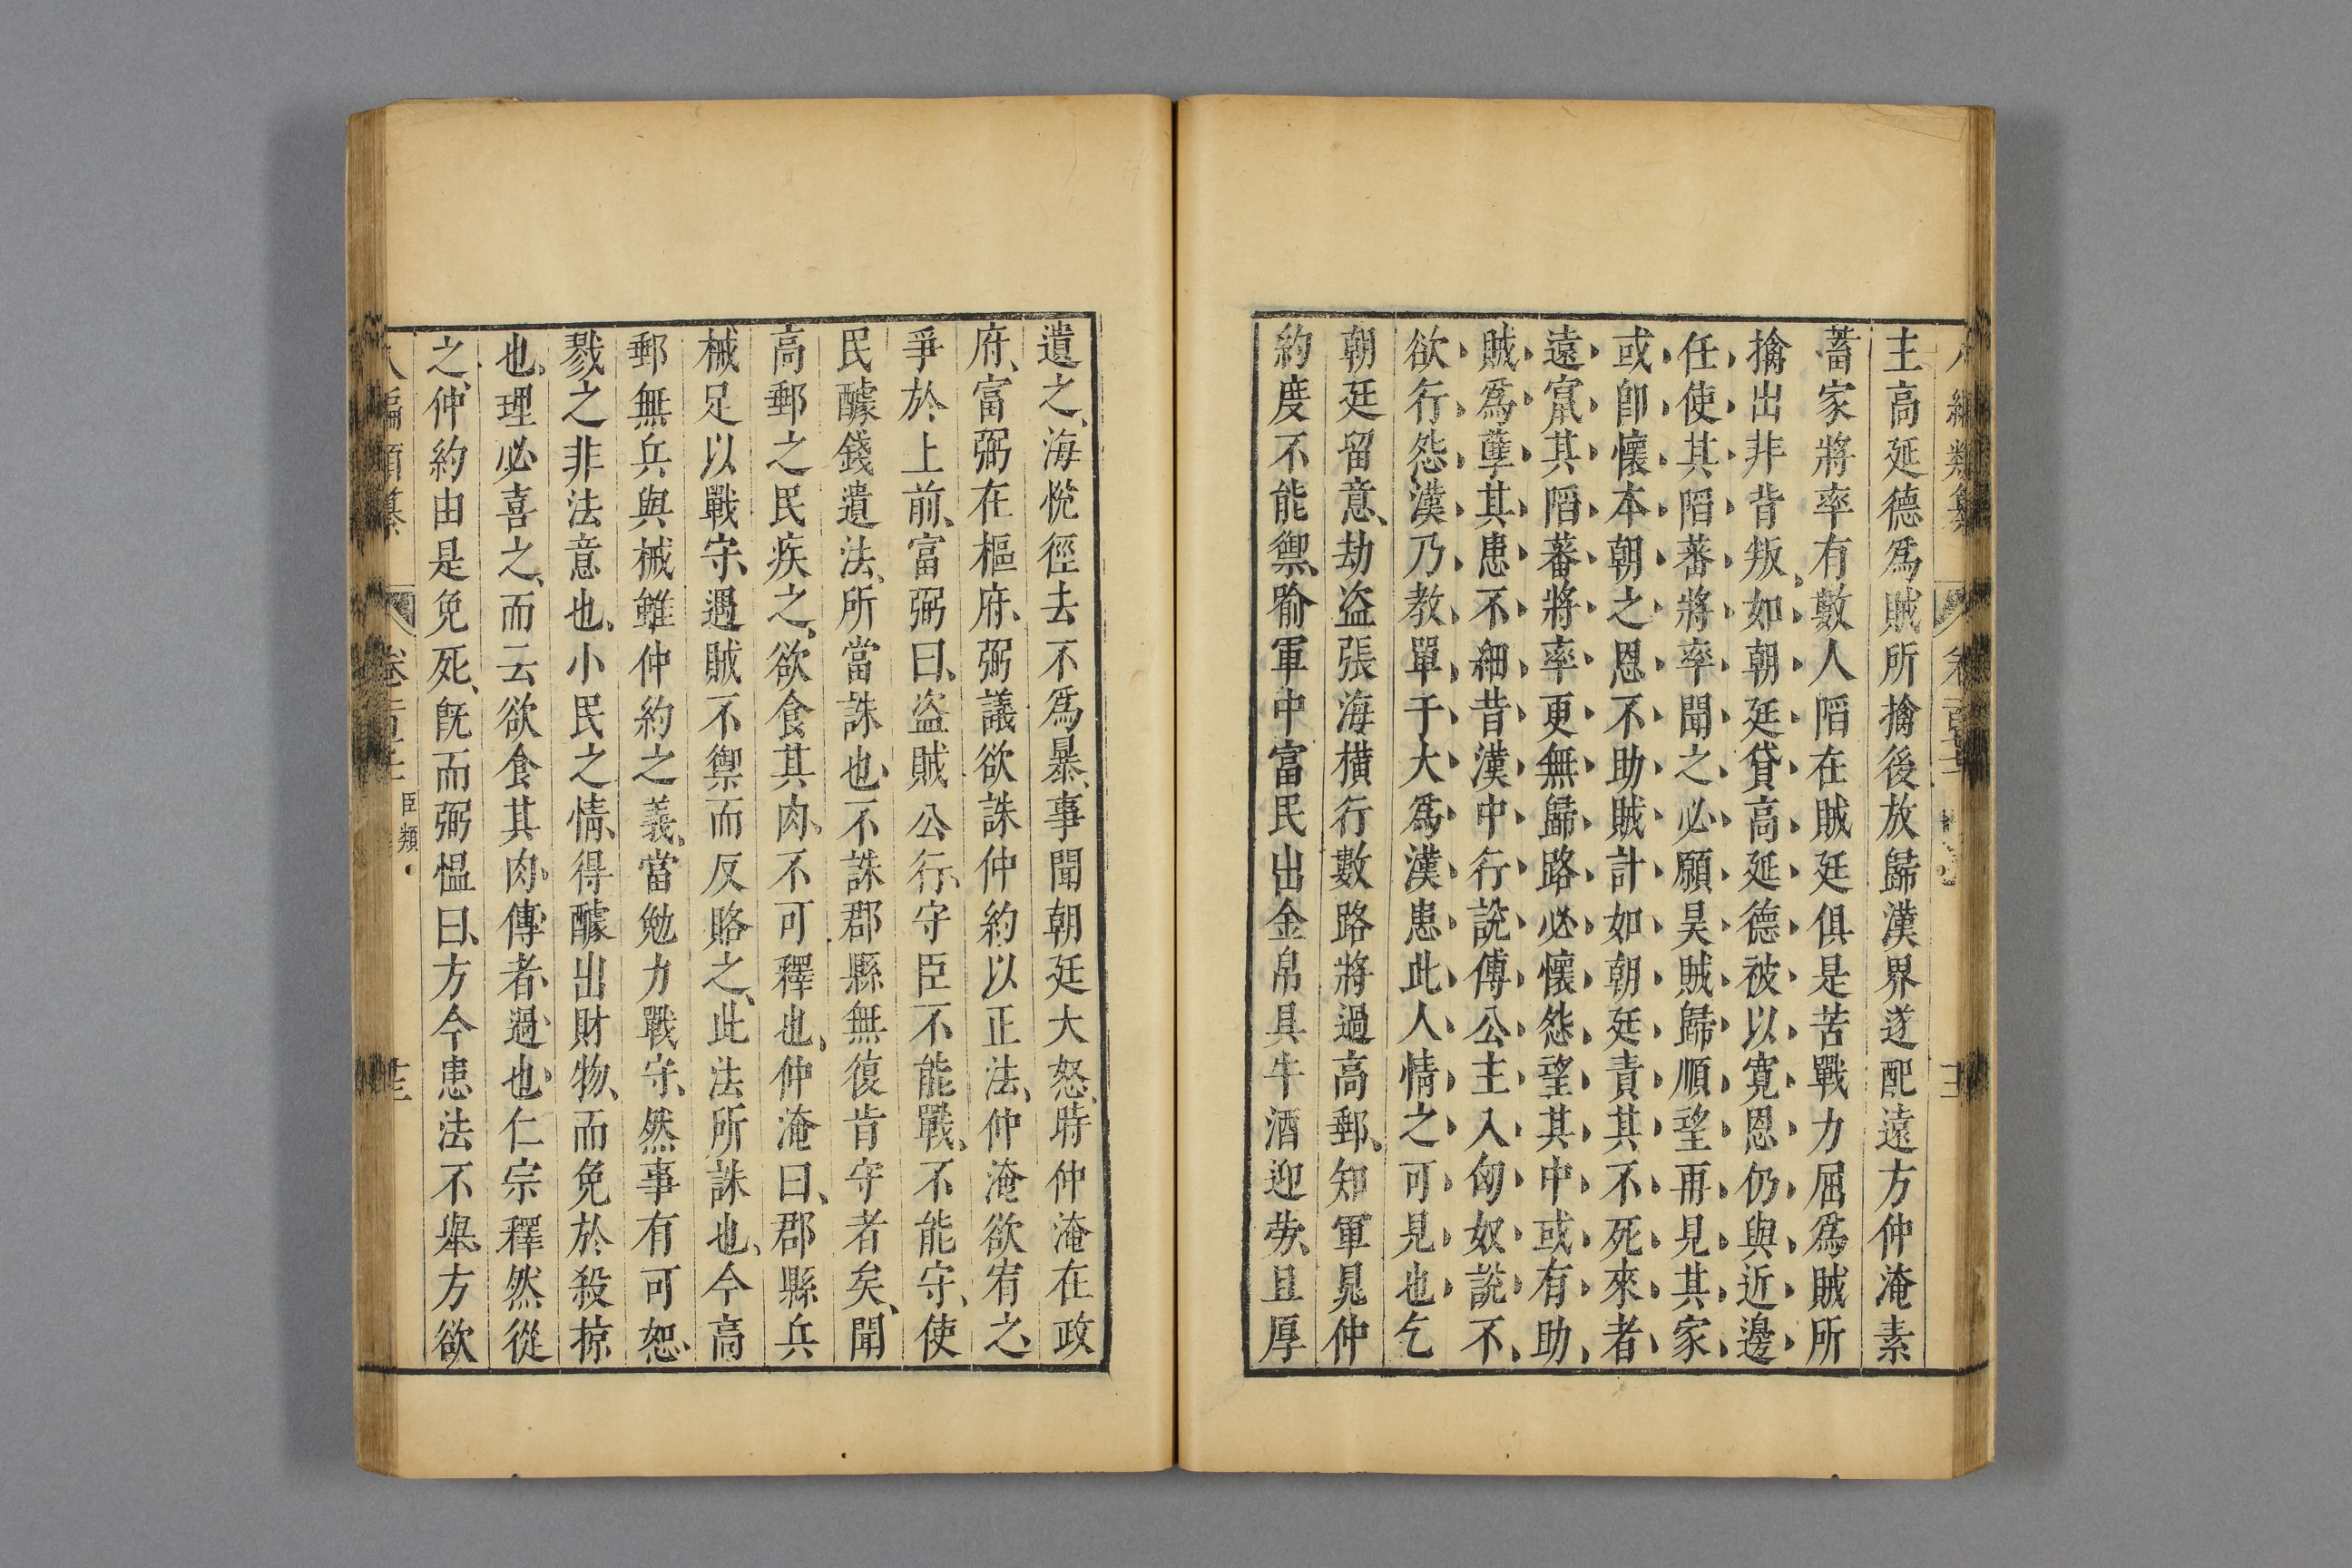 主高延德爲賊所擒後放歸漢界遂配遠方仲淹素
蓄家將率有數人陷在賊廷俱是苦戰力屈爲賊所
擒出非背叛如朝廷貸高延德被以寛恩仍與近邊
任使其陷蕃將率聞之必願昊賊歸順望再見其家
或卽懷本朝之恩不助賊計如朝廷責其不死來者
遠竄其陷蕃將率更無歸路必懷怨望其中或有助
賊爲孽其患不細昔漢中行說傅公主入匈奴說不
欲行怨漢乃教單于大爲漢患此人情之可見也乞
朝廷留意劫盜張海横行數路將過高郵知軍晁仲
約度不能禦喻軍中富民出金帛具牛酒迎勞且厚
遺之海悅徑去不爲暴事聞朝廷大怒時仲淹在政
府富弼在樞府弼議欲誅仲約以正法仲淹欲宥之
爭於上前富弼曰盜賊公行守臣不能戰不能守使
民醵錢遺法所當誅也不誅郡縣無復肯守者矣聞
高郵之民疾之欲食其肉不可釋也仲淹曰郡縣兵
械足以戰守遇賊不禦而反賂之此法所誅也今高
郵無兵與械雖仲約之義當勉力戰守然事有可恕
戮之非法意也小民之情得醵出財物而免於殺掠
也理必喜之而云欲食其肉傳者過也仁宗釋然從
之仲約由是免死旣而弼慍曰方今患法不舉方欲
八編類纂 卷百 臣類